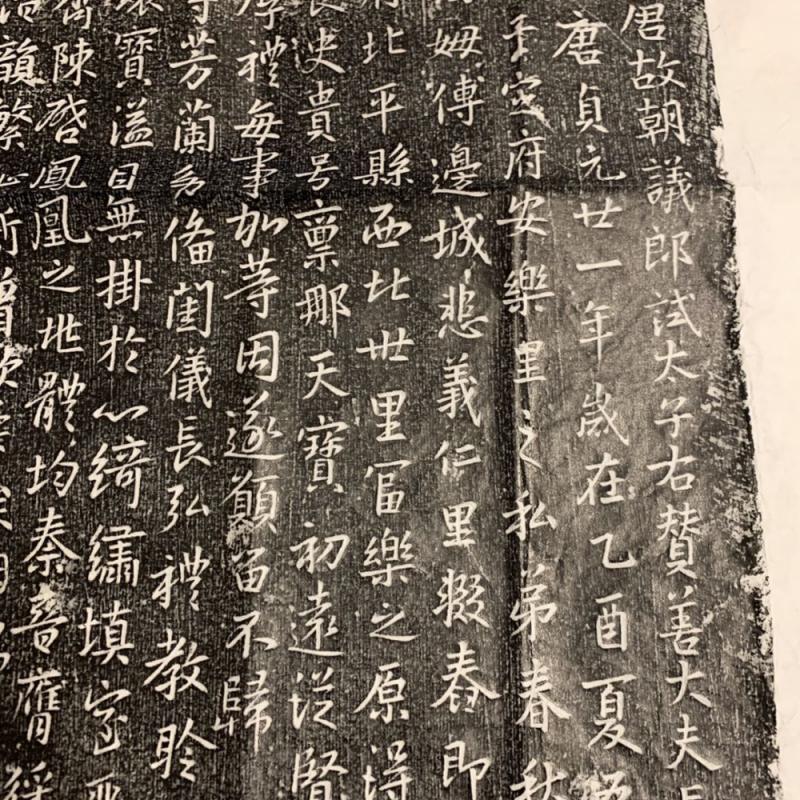 君故朝議郎試太子右贊善大夫
唐貞元廿一年歲在乙酉夏
于定府安樂里之私弟春秋
姆傅邊城悲義仁里輟舂即
北平縣西北卅里富樂之原
長史貴号禀那天寶初遠從賢
禮每事加等因遂願留不歸
芳蘭多備閨儀長弘禮教聆
寶溢目無掛於心綺繡填室
陳啓鳳凰之兆體均秦晉膺
韻繁